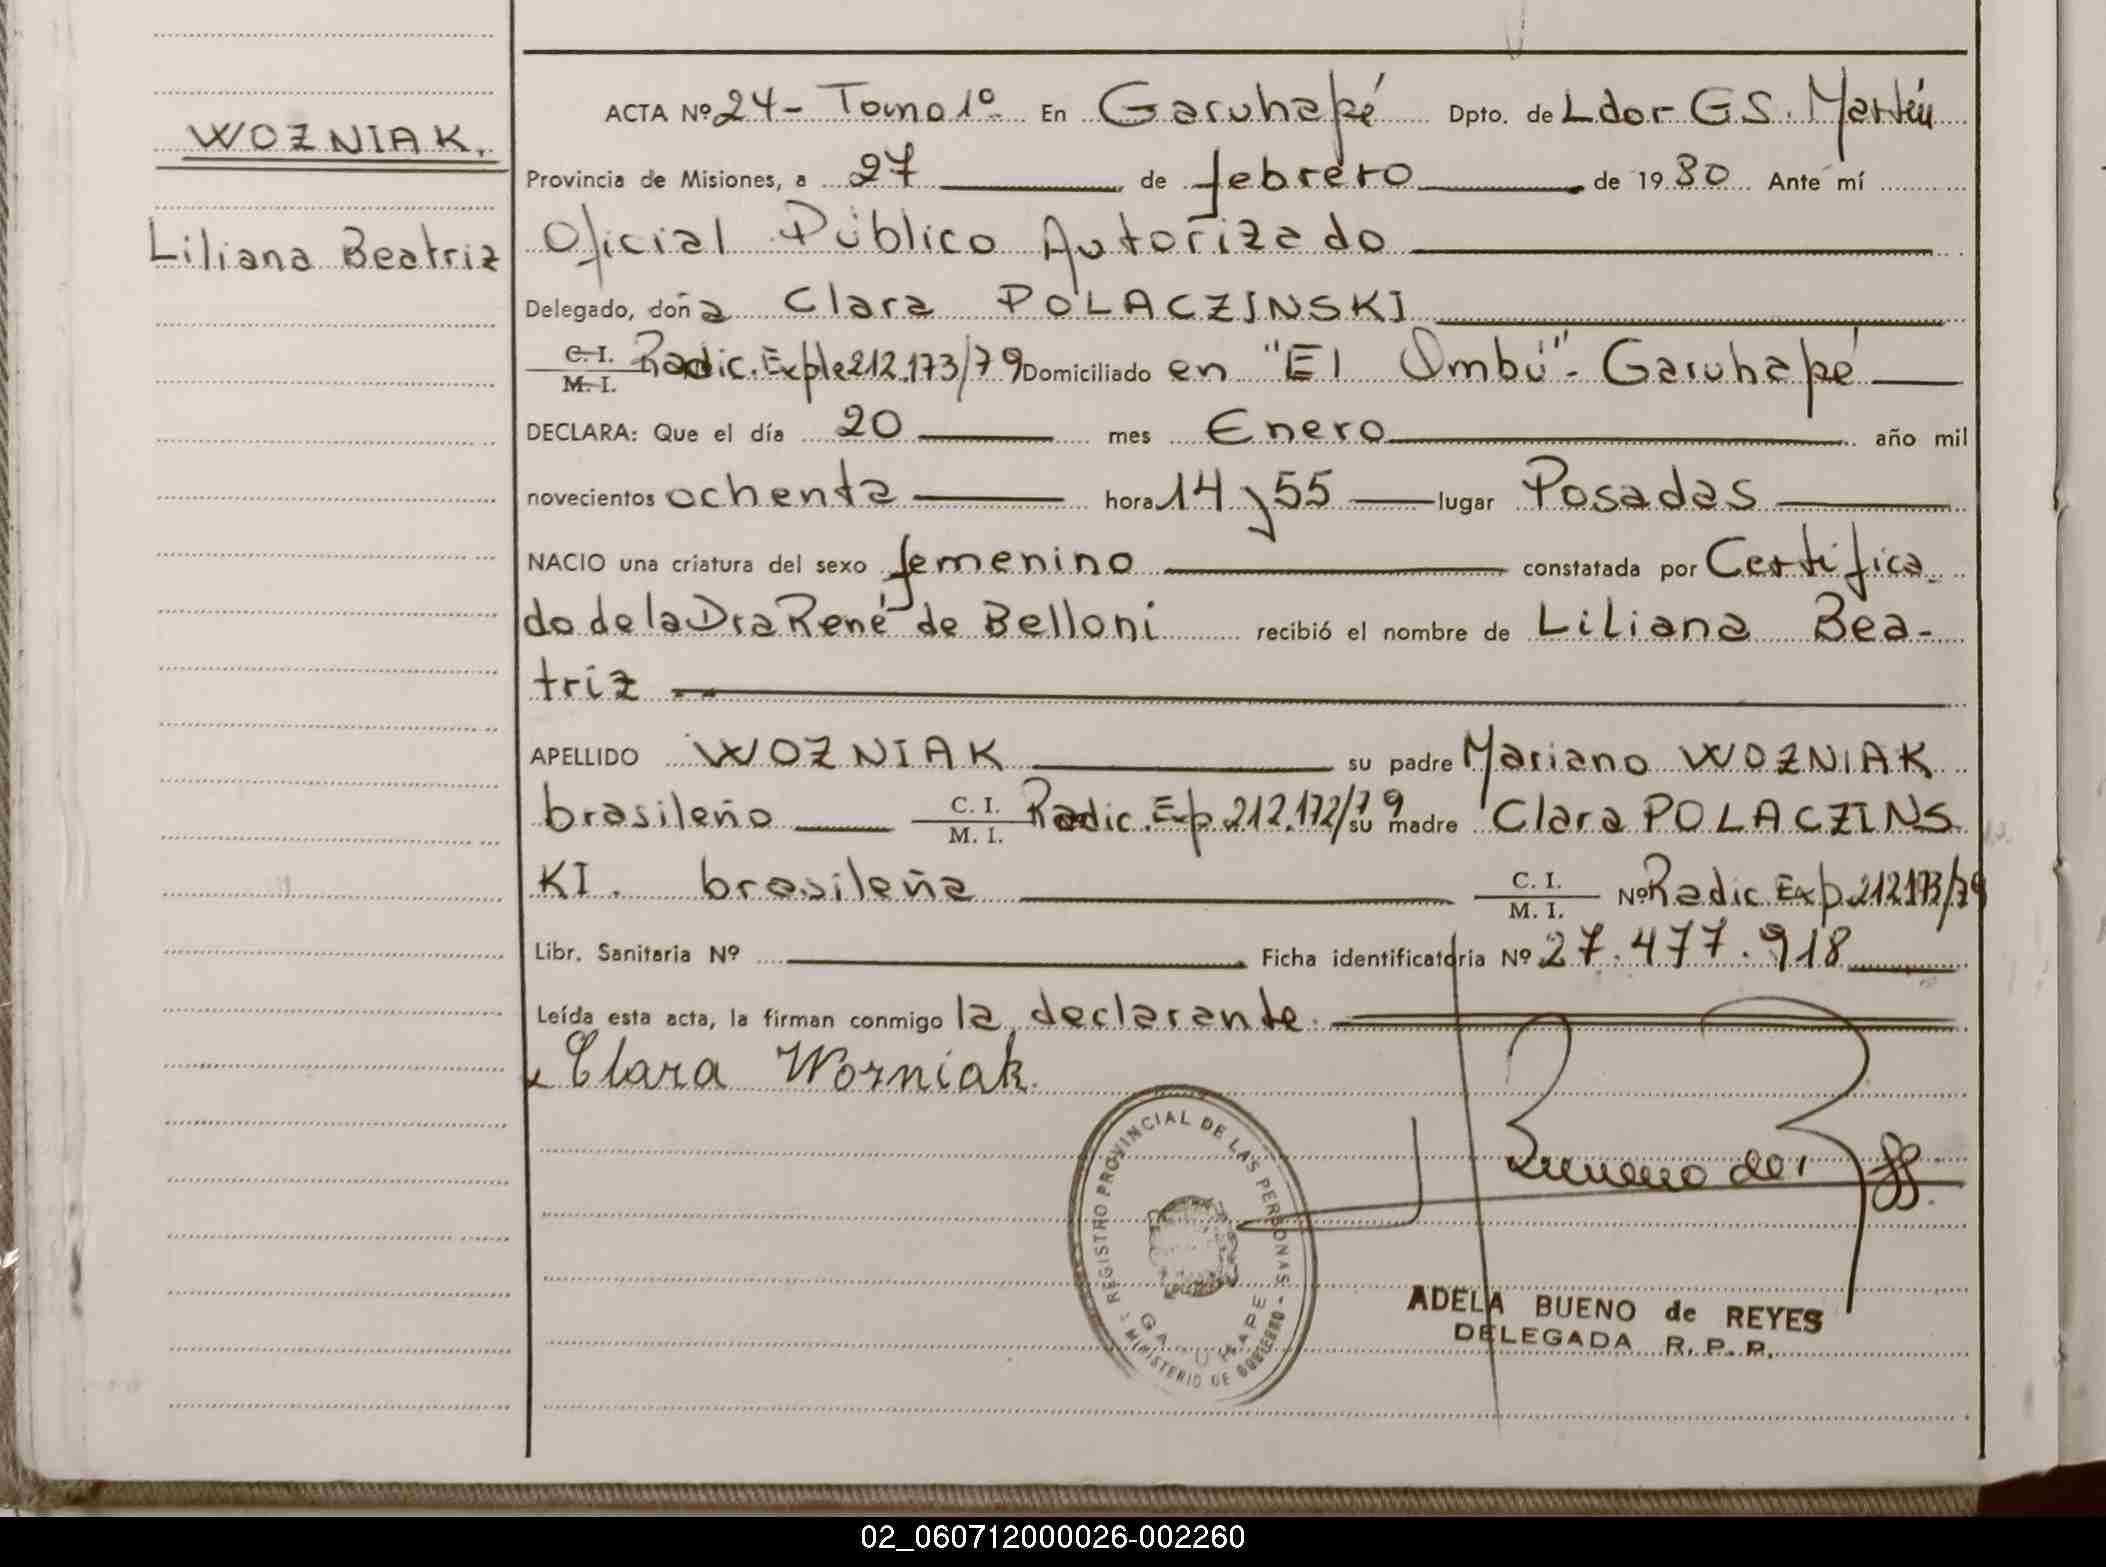 WOZNIAK.
Liliana Beatriz
ACTA Nº 24 - Tomo 1º En Garuhapé Dpto. de Ldor G S. Martín
Provincia de Misiones, a 27 de febrero de 1980 Ante mí
Oficial Público Autorizado
Delegado, doña Clara POLACZINSKI
C. I. M. I. Radic. Expte 212.173/79 Domiciliado en "El Ombú" - Garuhapé
DECLARA: Que el día 20 mes Enero año mil
novecientos ochenta hora 14 y 55 lugar Posadas
NACIO una criatura del sexo femenino constatada por Certifica-
do de la Dra René de Belloni recibió el nombre de Liliana Bea-
triz
APELLIDO WOZNIAK su padre Mariano WOZNIAK
brasileño C. I. M. I. Radic. Exp. 212.172/79 su madre Clara POLACZINS
KI. brasileña C. I. M. I. Nº Radic Exp. 212173/79
Libr. Sanitaria Nº Ficha identificatoria Nº 27.477.918
Leída esta acta, la firman conmigo la declarante.
x Clara Wozniak.
REGISTRO PROVINCIAL DE LAS PERSONAS - MINISTERIO DE GOBIERNO -
GARUHAPE
ADELA BUENO de REYES
DELEGADA R. P. P.
02_060712000026-002260